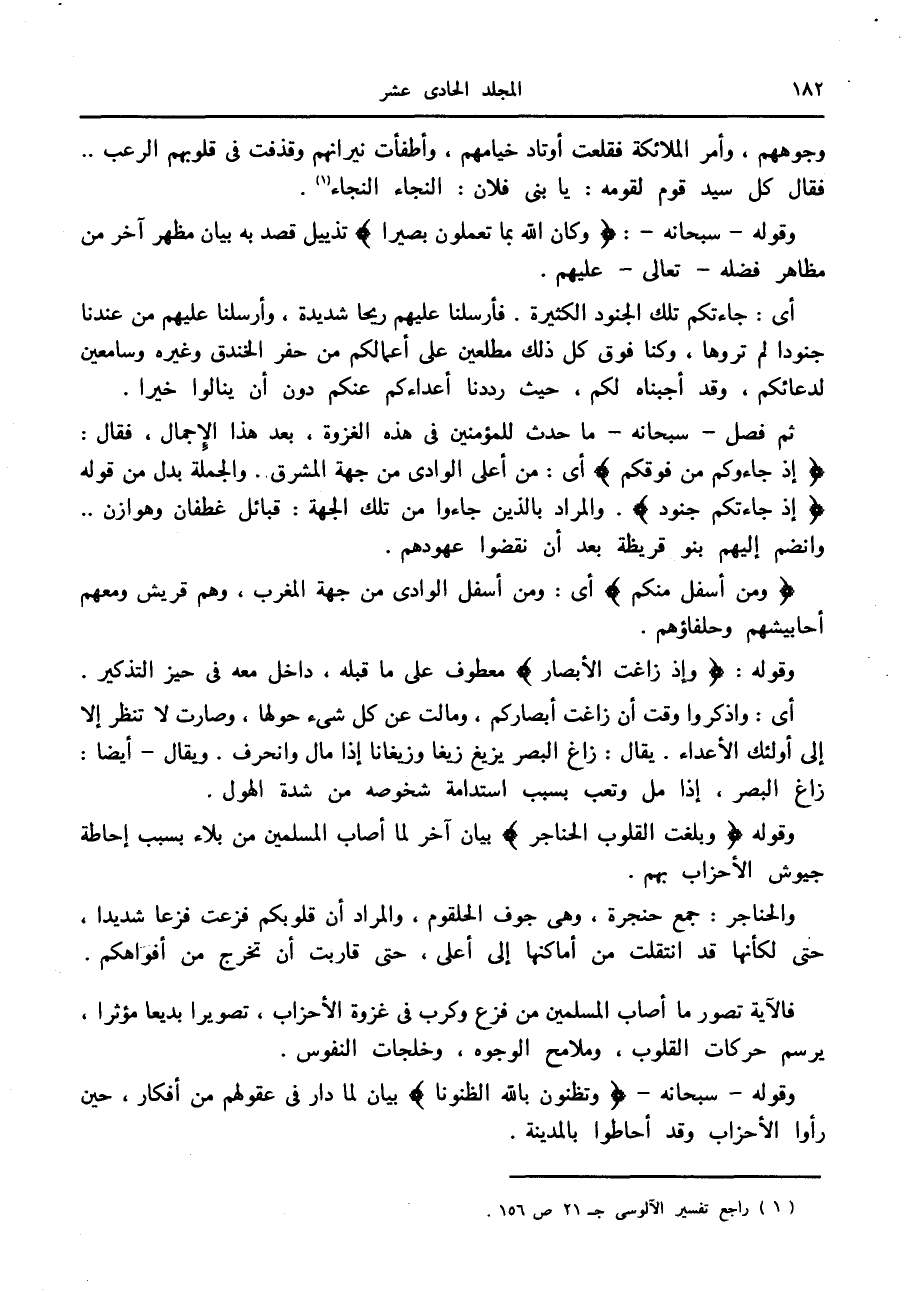 ١٨٢ المجلد الحادى عشر
وجوههم ، وأمر الملائكة فقلعت أوتاد خيامهم ، وأطفأت نيرانهم وقذفت فى قلوبهم الرعب ..
فقال كل سيد قوم لقومه : يا بنى فلان : النجاء النجاء(١) .
وقوله – سبحانه – : ﴿ وكان الله بما تعملون بصيرا ﴾ تذييل قصد به بيان مظهر آخر من
مظاهر فضله – تعالى – عليهم .
أى : جاءتكم تلك الجنود الكثيرة . فأرسلنا عليهم ريحا شديدة ، وأرسلنا عليهم من عندنا
جنودا لم تروها ، وكنا فوق كل ذلك مطلعين على أعمالكم من حفر الخندق وغيره وسامعين
لدعائكم ، وقد أجبناه لكم ، حيث رددنا أعداءكم عنكم دون أن ينالوا خيرا .
ثم فصل – سبحانه – ما حدث للمؤمنين فى هذه الغزوة ، بعد هذا الإجمال ، فقال :
﴿ إذ جاءوكم من فوقكم ﴾ أى : من أعلى الوادى من جهة المشرق . والجملة بدل من قوله
﴿ إذ جاءتكم جنود ﴾ . والمراد بالذين جاءوا من تلك الجهة : قبائل غطفان وهوازن ..
وانضم إليهم بنو قريظة بعد أن نقضوا عهودهم .
﴿ ومن أسفل منكم ﴾ أى : ومن أسفل الوادى من جهة المغرب ، وهم قريش ومعهم
أحابيشهم وحلفاؤهم .
وقوله : ﴿ وإذ زاغت الأبصار ﴾ معطوف على ما قبله ، داخل معه فى حيز التذكير .
أى : واذكروا وقت أن زاغت أبصاركم ، ومالت عن كل شىء حولها ، وصارت لا تنظر إلا
إلى أولئك الأعداء . يقال : زاغ البصر يزيغ زيغا وزيغانا إذا مال وانحرف . ويقال – أيضا :
زاغ البصر ، إذا مل وتعب بسبب استدامة شخوصه من شدة الهول .
وقوله ﴿ وبلغت القلوب الحناجر ﴾ بيان آخر لما أصاب المسلمين من بلاء بسبب إحاطة
جيوش الأحزاب بهم .
والحناجر : جمع حنجرة ، وهى جوف الحلقوم ، والمراد أن قلوبكم فزعت فزعا شديدا ،
حتى لكأنها قد انتقلت من أماكنها إلى أعلى ، حتى قاربت أن تخرج من أفواهكم .
فالآية تصور ما أصاب المسلمين من فزع وكرب فى غزوة الأحزاب ، تصويرا بديعا مؤثرا ،
يرسم حركات القلوب ، وملامح الوجوه ، وخلجات النفوس .
وقوله – سبحانه – ﴿ وتظنون بالله الظنونا ﴾ بيان لما دار فى عقولهم من أفكار ، حين
رأوا الأحزاب وقد أحاطوا بالمدينة .
( ١ ) راجع تفسير الآلوسى جـ ٢١ ص ١٥٦ .